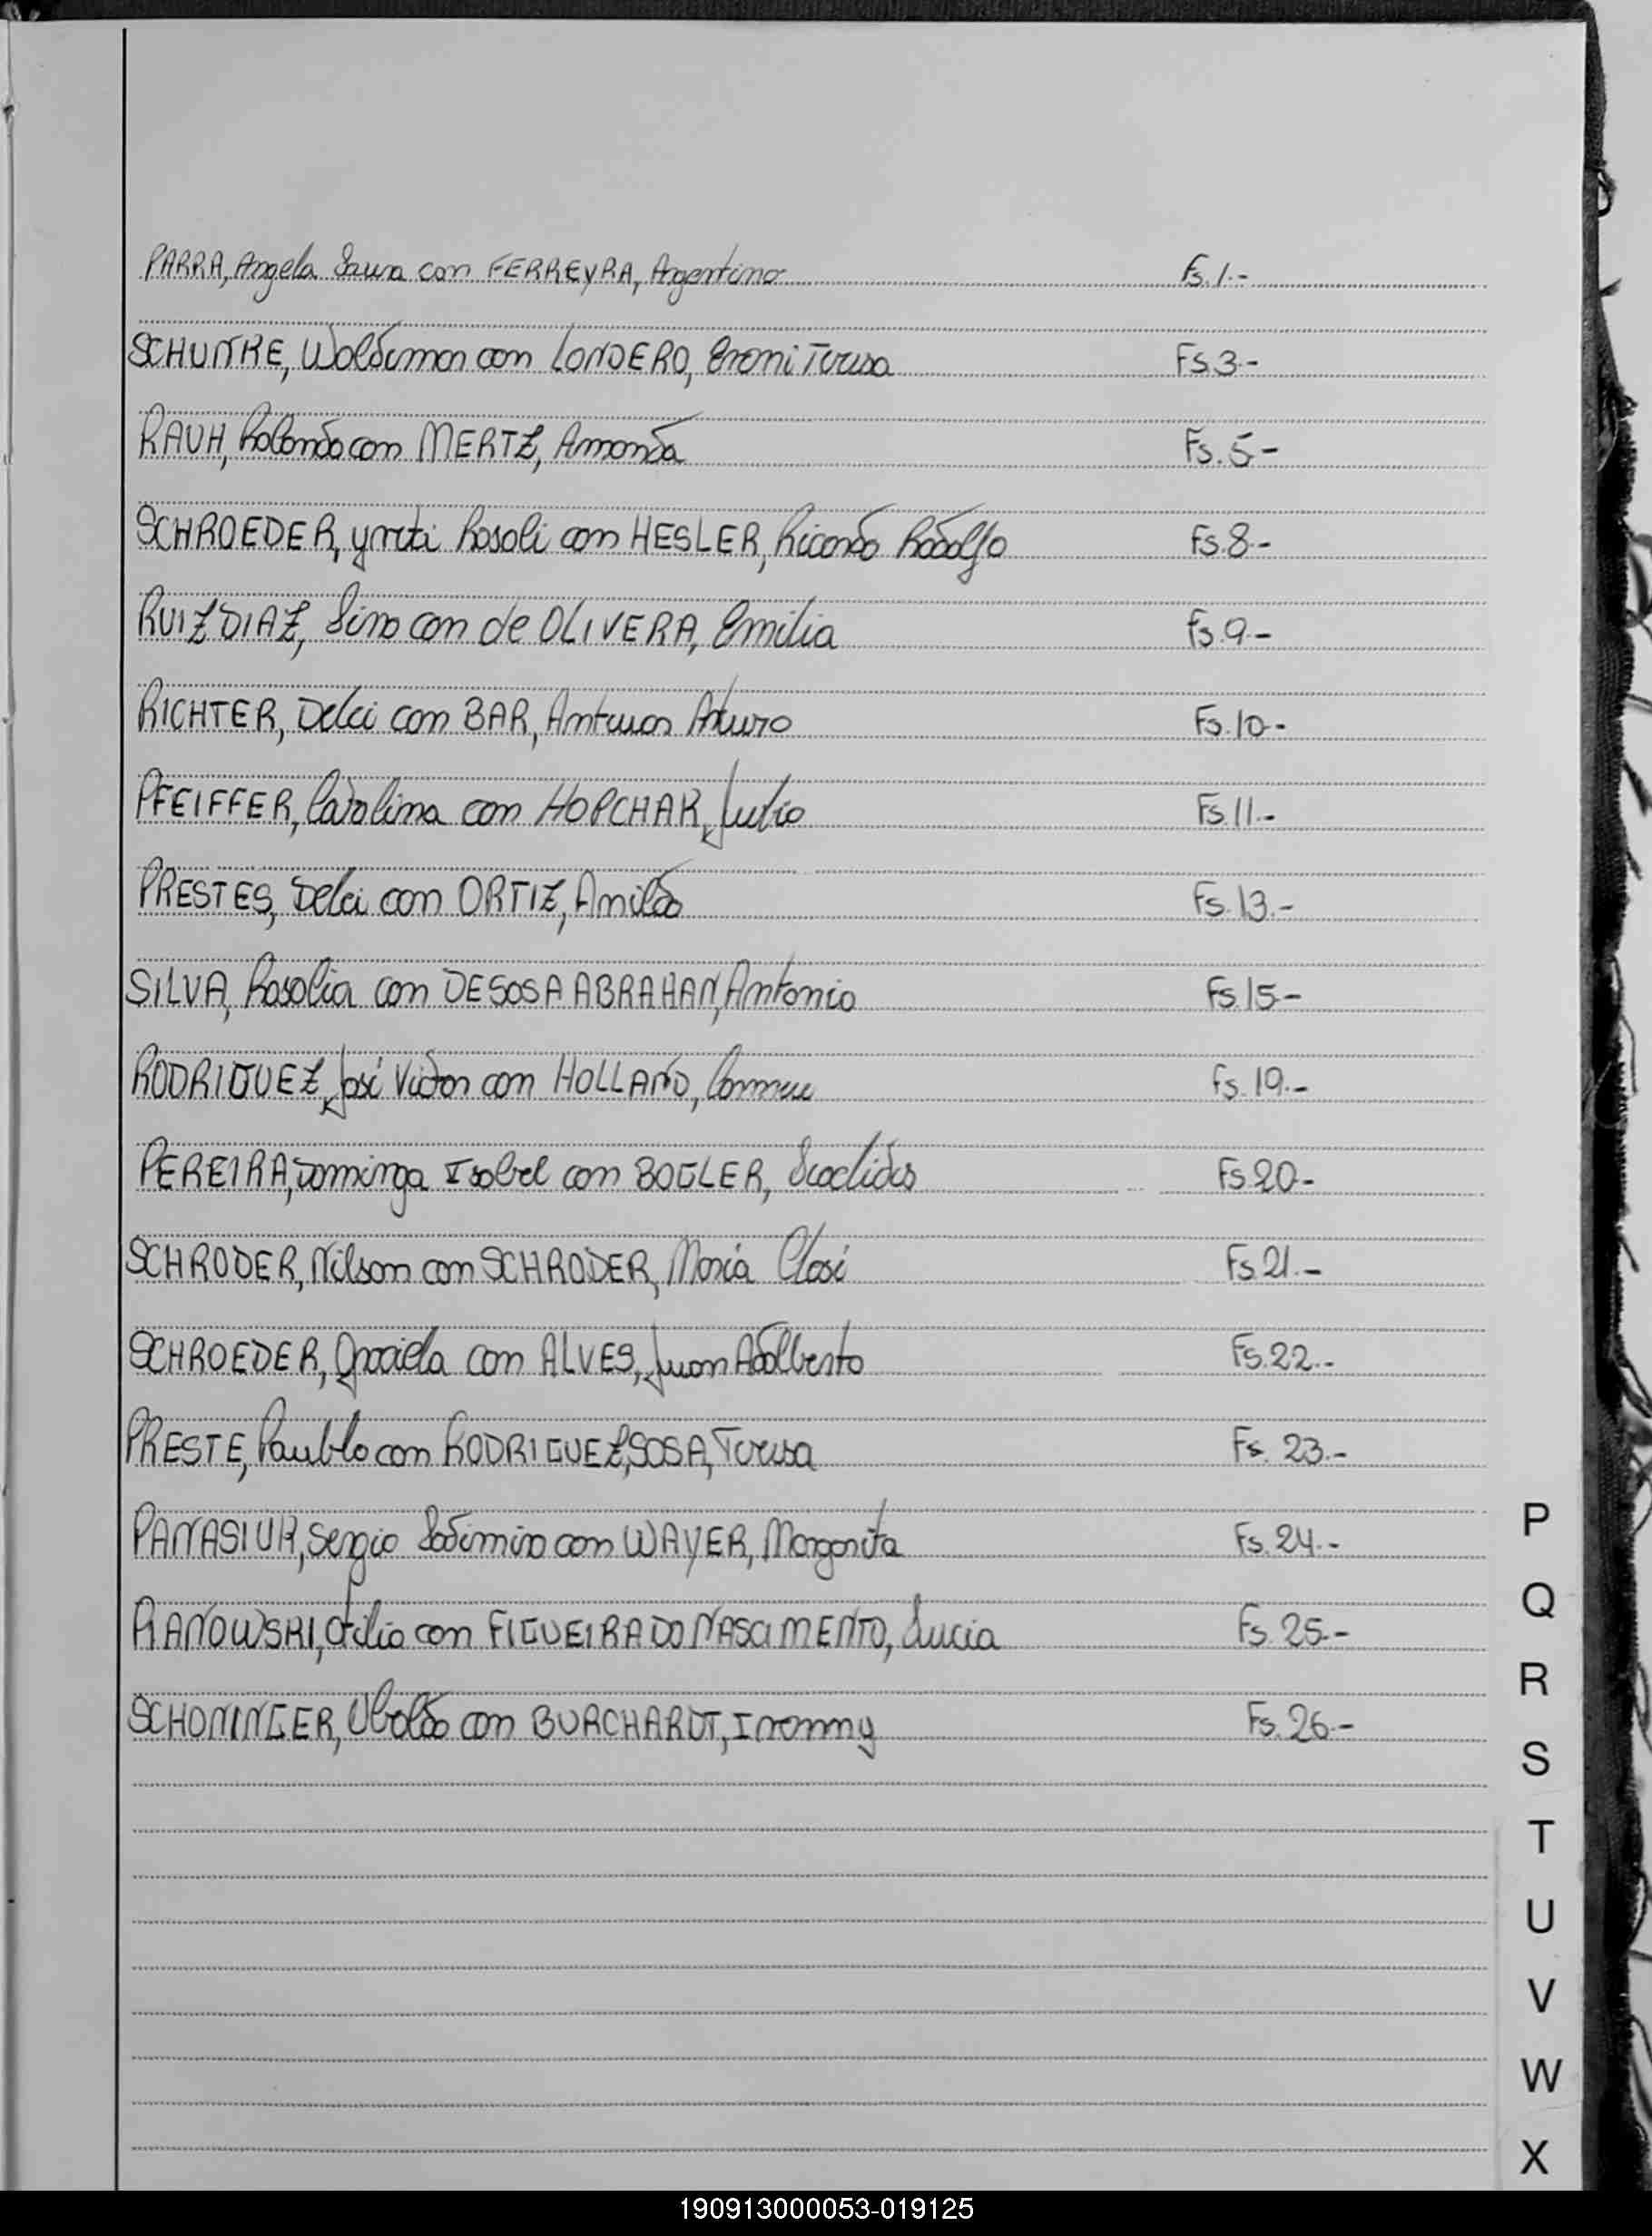 PARRA, Angela Laura con FERREYRA, Argentino Fs. 1.-
SCHUNKE, Waldemar con LONDERO, Eroni Teresa Fs 3.-
RAUH, Rolando con MERTZ, Amanda Fs. 5-
SCHROEDER, Yrati Rosali con HESLER, Ricardo Rodolfo Fs. 8-
RUIZ DIAZ, Lino con de OLIVERA, Emilia Fs. 9-
RICHTER, Delci con BAR, Arturo Fs. 10-
PFEIFFER, Carolina con HOPCHAK, Julio Fs. 11.-
PRESTES, Delci con ORTIZ, Anildo Fs. 13.-
SILVA, Rosalia con DE SOSA ABRAHAN, Antonio Fs. 15-
RODRIGUEZ, José Victor con HOLLAND, Fs. 19.-
PEREIRA, Dominga Isabel con BOGLER, Fs 20-
SCHRODER, Nilson con SCHRODER, María Fs. 21.-
SCHROEDER, Graciela con ALVES, Juan Adalberto Fs. 22.-
PRESTE, Paublo con RODRIGUEZ, SOSA, Teresa Fs. 23.-
PANASIUK, Sergio Ladimiro con WAYER, Margarita Fs. 24.-
RANOWSKI, Otilio con FIGUEIRA DO NASCIMENTO, Lucia Fs. 25.-
SCHONINGER, Ubaldo con BURCHARDT, Iranny Fs. 26.-
P
Q
R
S
T
U
V
W
X
190913000053-019125